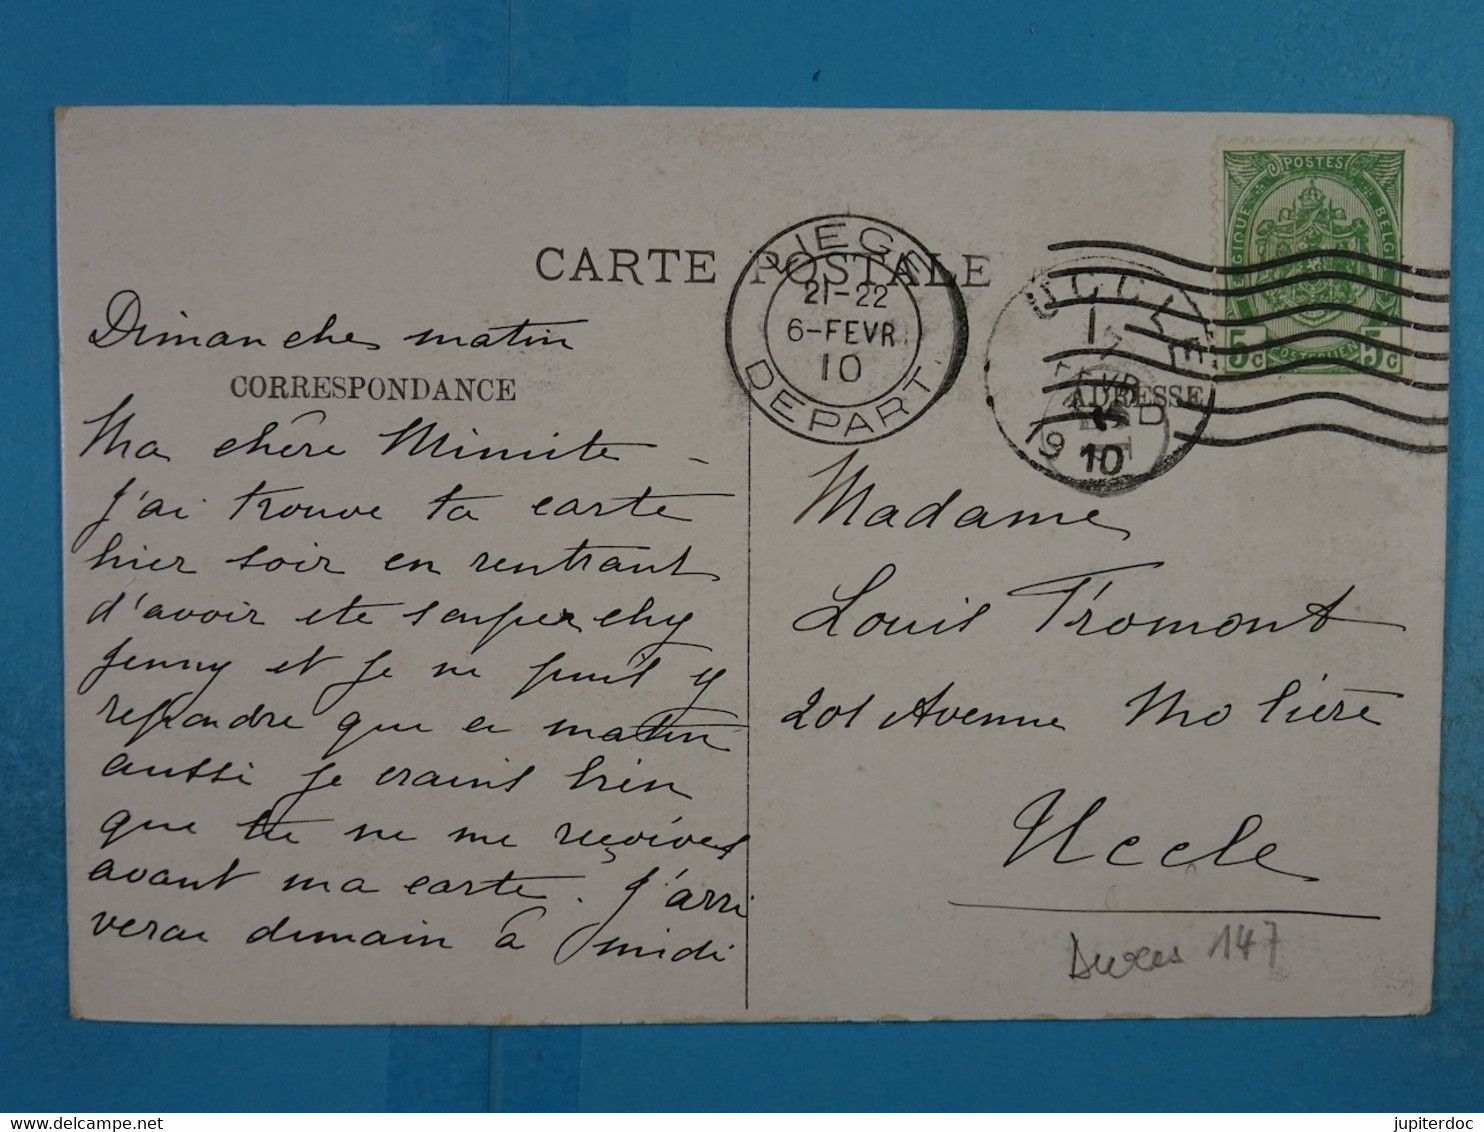 CARTE POSTALE
LIEGE
21-22
6-FEVR
10
DEPART
UCCLE
1
7
FEVR
1910
POSTES
BELGIQUE
BELGIE
5c POSTERIJEN 5c
Dimanche matin
CORRESPONDANCE
Ma chère Mimite -
J'ai trouve ta carte
hier soir en rentrant
d'avoir ete souper chez
Jenny et je ne puis y
repondre que ce matin
aussi je crains bien
que tu ne me reçoives
avant ma carte. J'arri
verai demain à midi
ADRESSE
Madame
Louis Fromont
201 Avenue Molière
Uccle
147
jupiterdoc